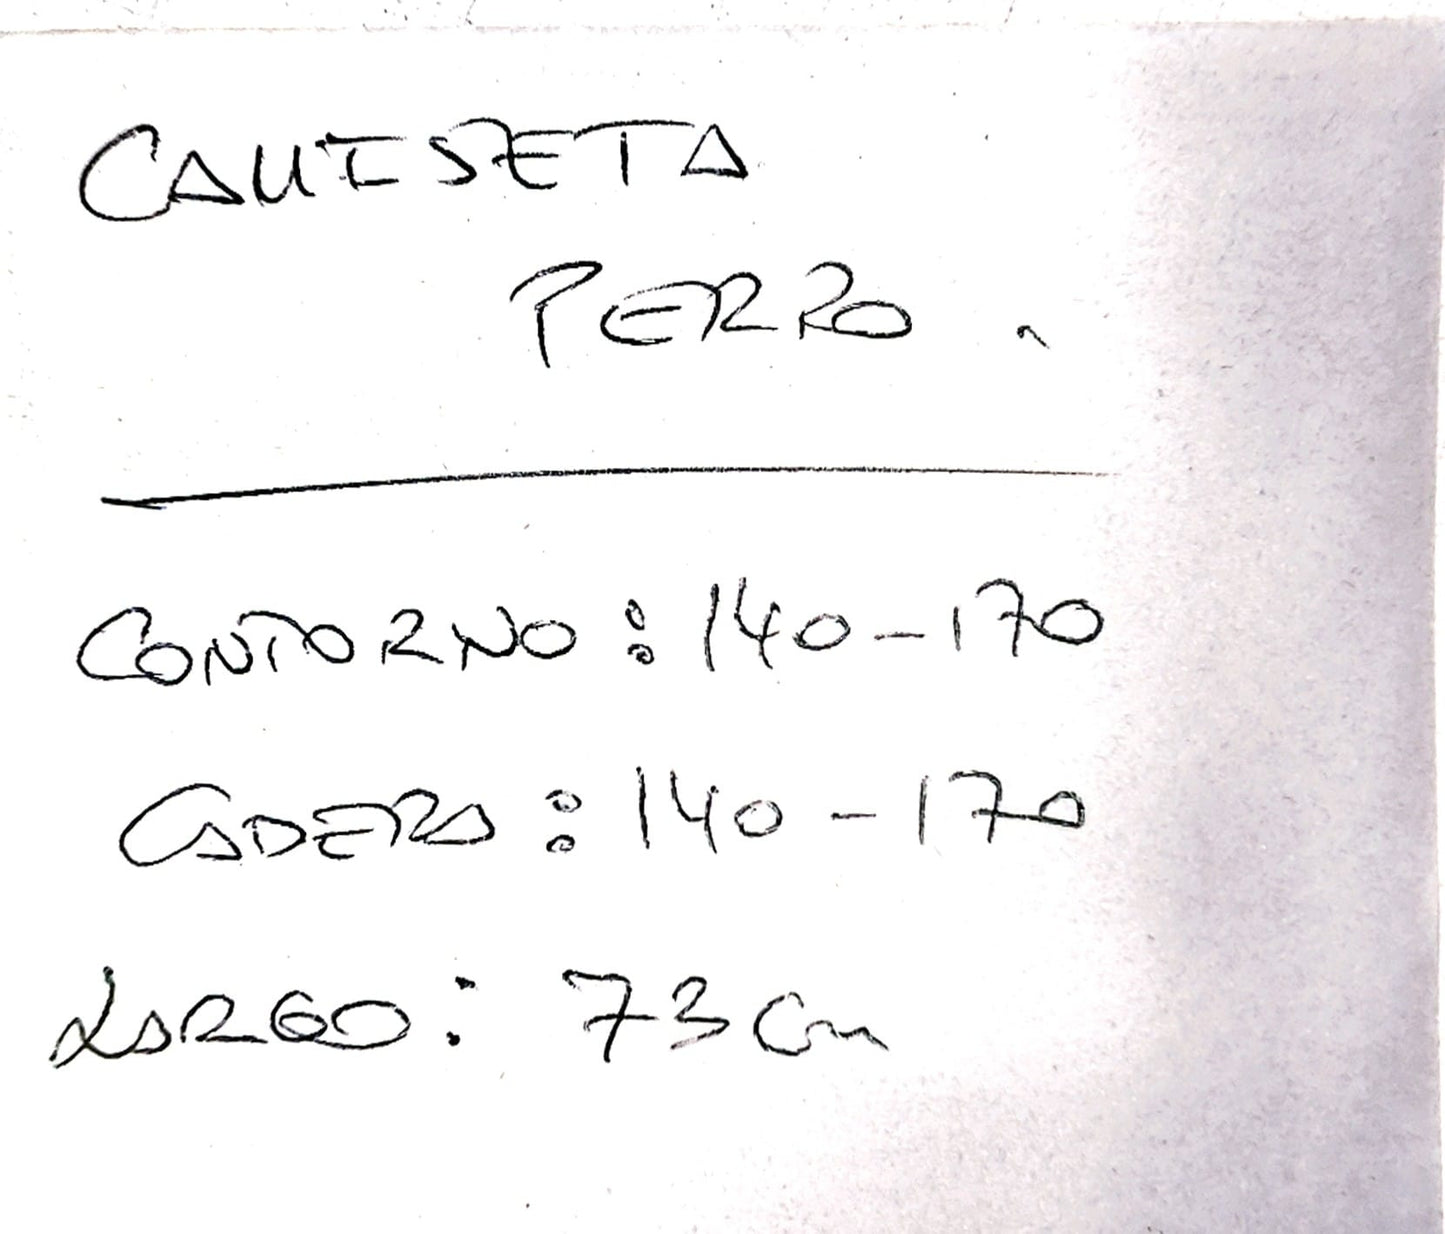 CAMISETA
PERRO.
CONTORNO: 140-170
CADERA: 140-170
LARGO: 73 cm